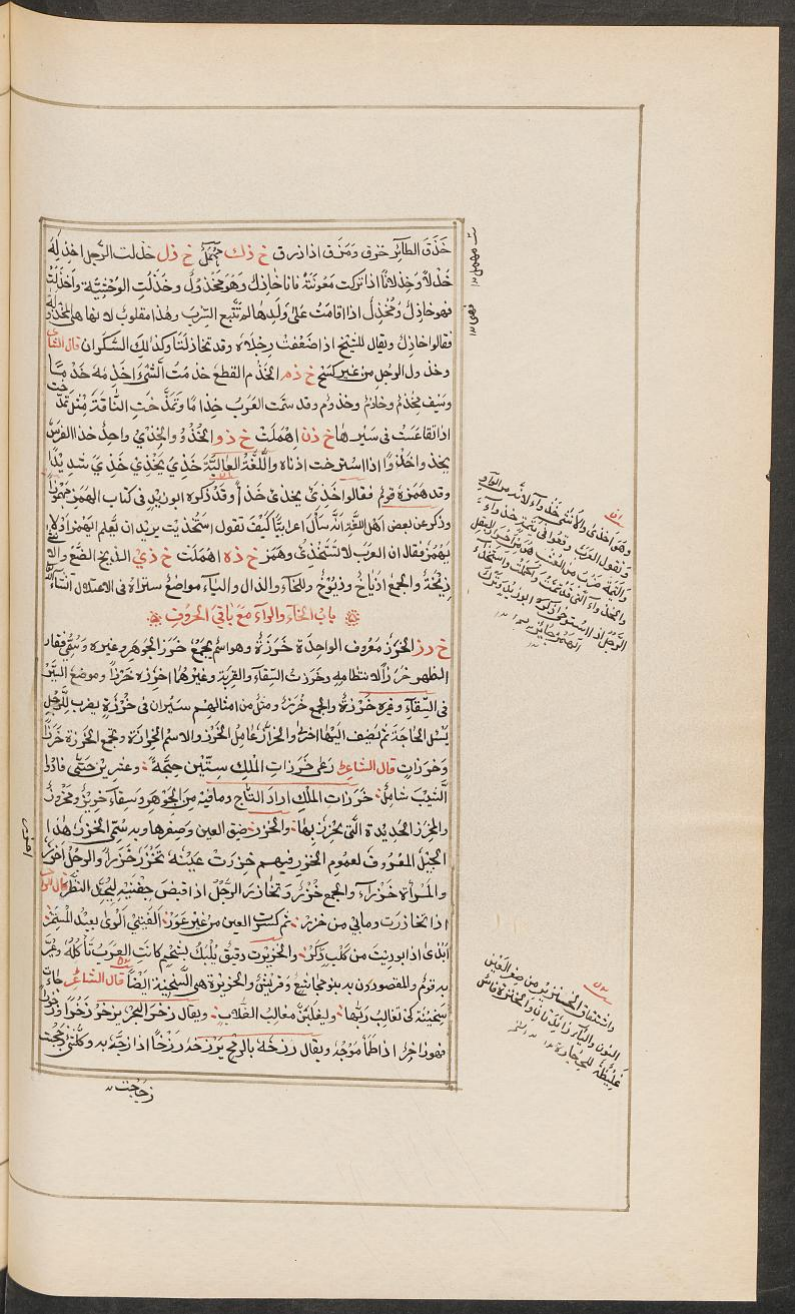 خذق الطائر خرق ومزق اذا ذرق خ ذ ك مهمل خ ذ ل خذلت الرجل اخذله
خذلا وخذلانا اذا تركت معونته فانا خاذل وهو مخذول وخذلت الوحشية واخذلت
فهو خاذل ومخذل اذا اقامت على ولدها لم تتبع السرب وهذا مقلوب لانها هى المخذولة
فقالوا خاذل ويقال للشيخ اذا ضعفت رجلاه وقد تخاذلتا وكذلك السكران قال الشاعر
وخذول الرجل من غير كسح خ ذ م الخذم القطع خذمت الشىء اخذمه خذما
وسيف مخذم وخاذم وخذوم وقد سمت العرب خذاما وتمذخت الناقة مثل تمذحت
اذا تقاعست فى سيرها خ ذ ن اهملت خ ذ و الخذو والخذى واحد خذا الفرس
يخذو خذوا اذا استرخت اذناه واللغة العالية خذى يخذى خذى شديدا
وقد همزه قوم فقالوا خذئ يخذئ خذأ وقد ذكره ابو زيد فى كتاب الهمز مهموزا
وذكر عن بعض اهل اللغة انه سأل اعرابيا كيف تقول استخذيت يريد ان يعلم ايهمز ام لا
يهمز فقال ان العرب لا تستخذئ وهمز خ ذ ه اهملت خ ذ ى الذيخ الضبع والانثى
ذيخة والجمع اذياخ وذيوخ وللخاء والذال والياء مواضع ستراه فى الاعتلال انشاء الله
باب الخاء والراء مع باقى الحروف
خ ر ز الخرز معروف الواحدة خرزة وهو اسم يجمع خرز الجوهر وغيره وسمى فقار
الظهر خرزا لانتظامه وخرزت السقاء والقربة وغيرهما اخرزه خرزا وموضع السير
فى السقاء وغيره خرزة والجمع خرز ومثل من امثالهم سيران فى خرزة يضرب للرجل
يسئل الحاجة ثم يضيف اليها اخرى والخراز عامل الخرز والاسم الخرازة وتجمع الخرزة خرزا
وخرزات قال الشاعر رعى خرزات الملك ستين حجة وعشرين حتى فاد وا
لشيب شامل خرزات الملك اراد التاج وما فيه من الجوهر وسقاء خريز ومخروز
والمخرز الحديدة التى يخرز بها والخزر ضيق العين وصغرها وبه سمى الخزر هذا
الجيل المعروف لعموم الخزر فيهم خزرت عينه تخزر خزرا والرجل اخزر
والمراة خزراء والجمع خزر وتخازر الرجل اذا قبض جفنيه ليحد النظر قال الراجز
اذا تخازرت ومابى من خزر ثم كسرت العين من غير عور الفيتنى الوى بعيد المستمر
ابذى اذا بوذيت من كلب ذكر والخزيرة دقيق يلبك بشحم كانت العرب تأكله وعير
به قوم والمقصودون به بنو مجاشع وقريش والخزيرة هى السخينة ايضا قال الشاعر جاءت
سخينة كى تغالب ربها وليغلبن مغالب الغلاب ويقال زخر البحر يزخر زخرا وزخورا
فهو زاخر اذا طمأ موجه ويقال زرخه بالرمح يزرخه زرخا اذا زجه به وكلتنى زججت
زججت
ت مهمل
اخزر
وهو اخذى والانثى خذواء
وتقول العرب وقعوا فى ينمة خذواء
والينمة ضرب من العشب
الرجل اذا استرخى ذكره ابو زيد وترك
الهمز
واشتقاق الخنزير من صغر العين
النون والياء زائدتان والخنزرة فاس
غليظة للحجارة